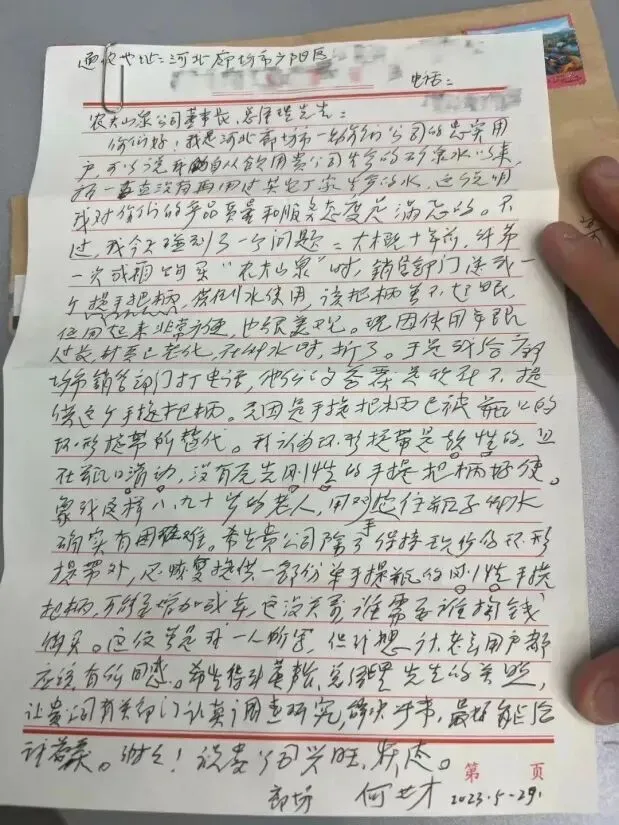 通信地址:河北廊坊市广阳区
电话:
农夫山泉公司董事长、总经理先生:
你们好!我是河北廊坊市一名你们公司的忠实用
户,可以说我自从饮用贵公司生产的矿泉水以来,
一直没有再用过其它厂家生产的水,这说明
我对你们的产品质量和服务态度是满意的。不
过,我今天碰到了一个问题:大概十年前,我第
一次成箱购买“农夫山泉”时,销售部门送我一
个提手把柄,供倒水使用,该把柄并不起眼,
但用起来非常方便,也很美观。现因使用年限
过长,材质已老化,在倒水时,折了。于是我给廊
坊市销售部门打电话,他们的答覆是收到不提
供这个手提把柄。原因是手提把柄已被瓶口的
环形提带所替代。我认为环形提带是软性的,且
在瓶口滑动,没有原先刚性的手提把柄好使。
象我这样八、九十岁的老人,用双手定住瓶子倒水
确实有困难。希望贵公司除了保持现行的环形
提带外,还恢复提供一部份单手提瓶的刚性手提
把柄,可能要增加成本,这没关系,谁需要谁掏钱
购买。这仅是我一人所写,但我想许多老用户都
应该有所同感。希望得到董事长、总经理先生的关照,
让贵公司有关部门认真调查研究,解决此事,最好能给
祝贵公司兴旺、发达。
第 页
廊坊 何世才 2023.5-29.